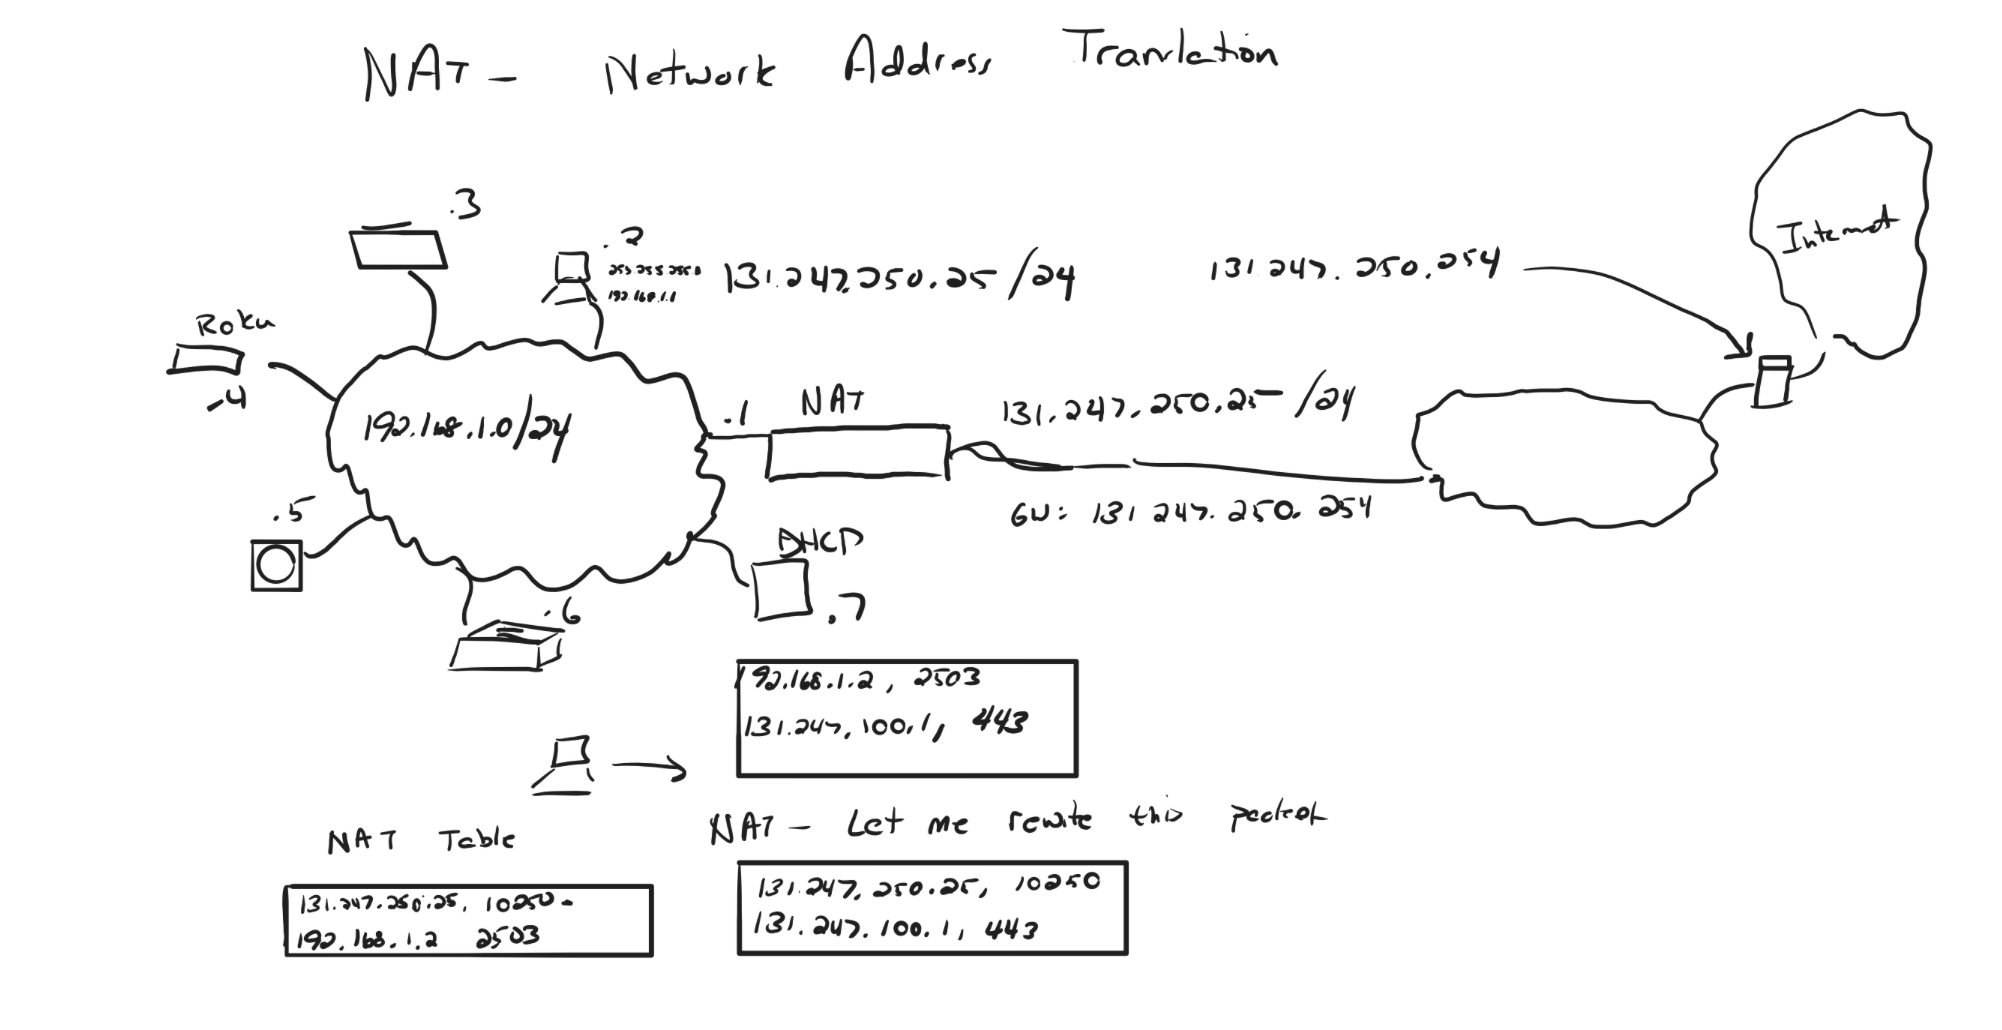 NAT - Network Address Translation
.3
.2
255 255 255 0
192.168.1.1
131.247.250.25 /24
131 247. 250.254
Internet
Roku
.4
192.168.1.0/24
.1
NAT
131.247.250.25 /24
GW: 131 247.250.254
.5
DHCP
.6
.7
192.168.1.2, 2503
131.247.100.1, 443
NAT - Let me rewite this packet
NAT Table
131.247.250.25, 10250
192.168.1.2 2503
131.247.250.25, 10250
131.247.100.1, 443